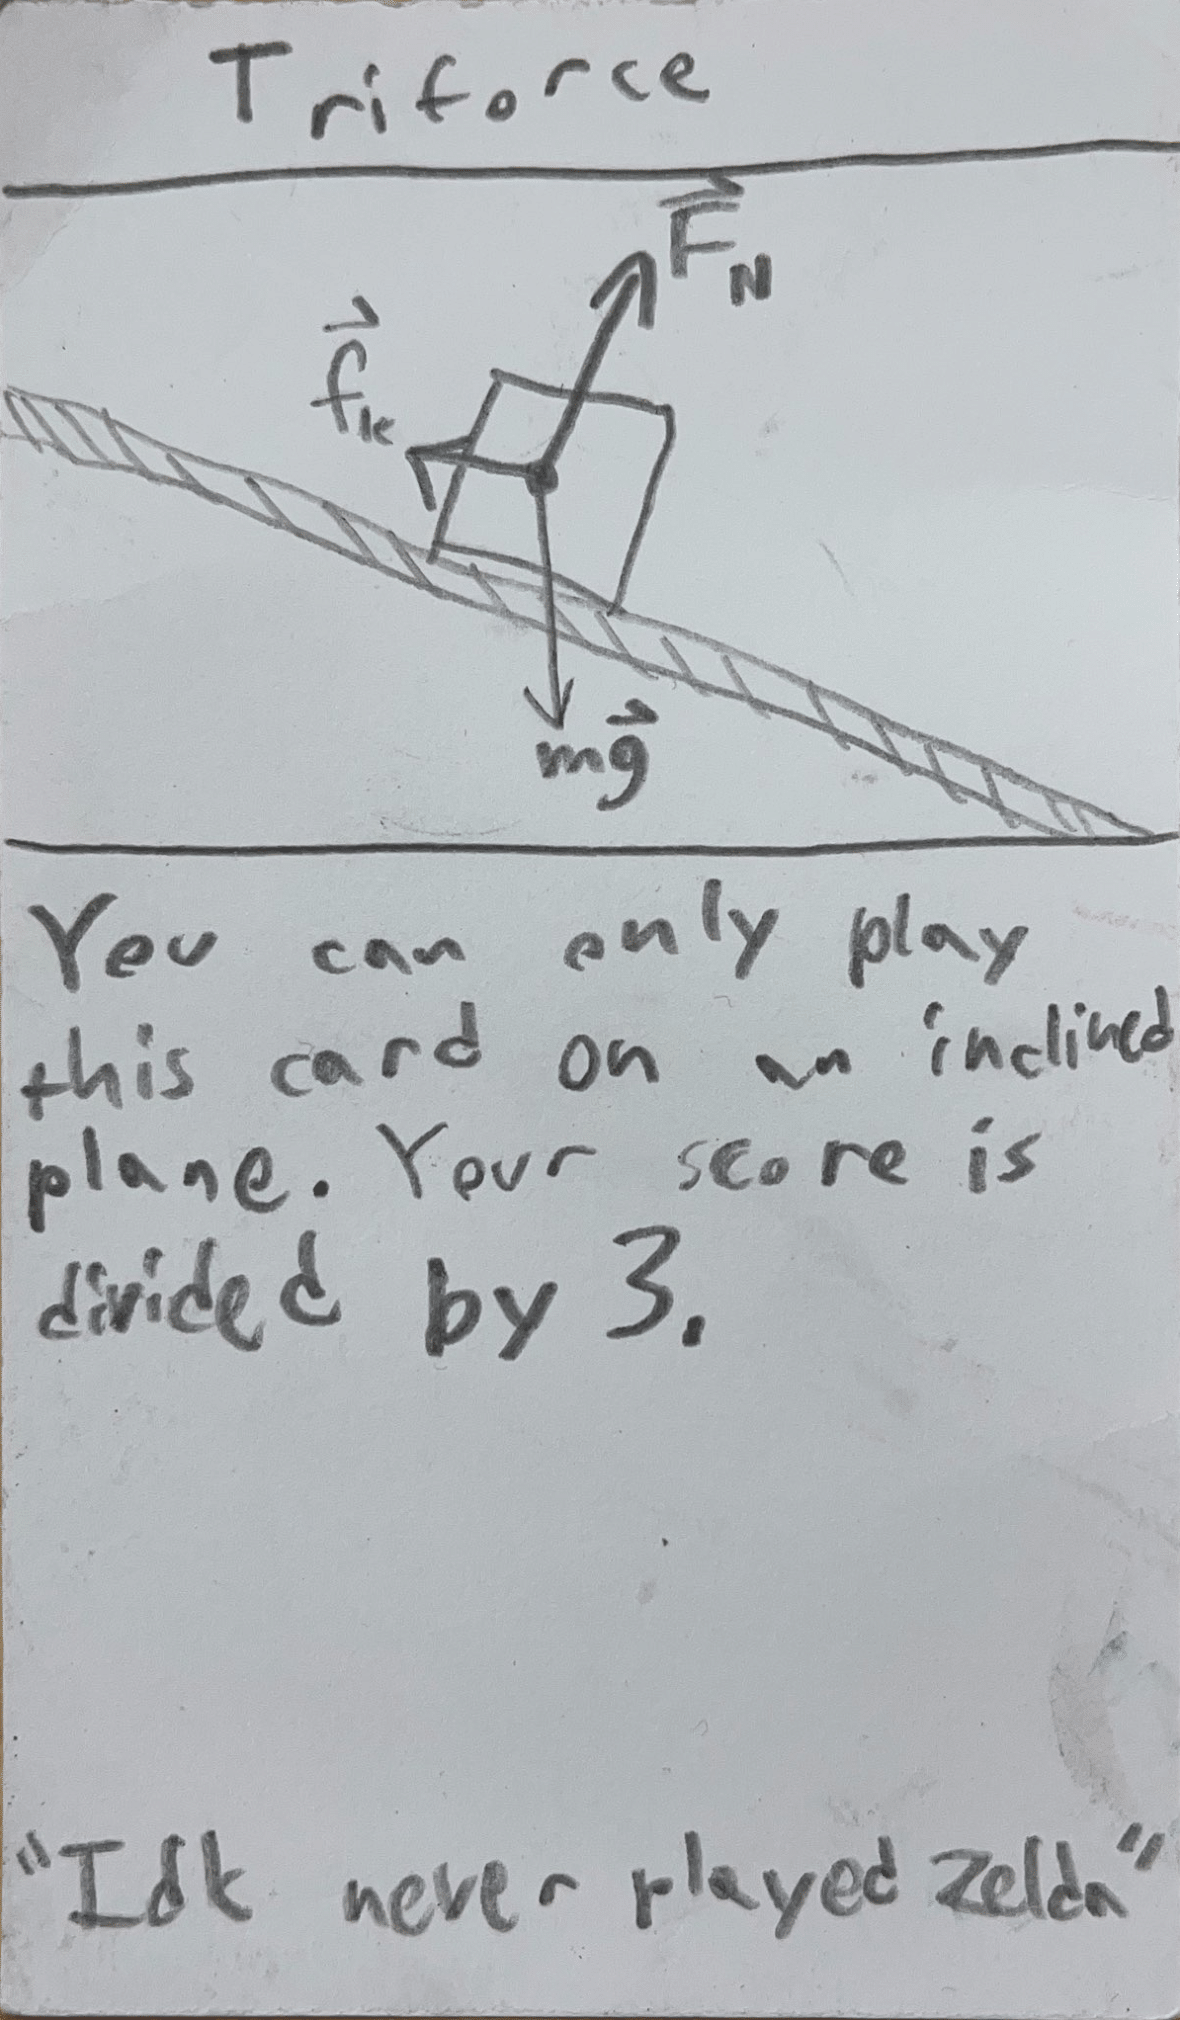 Triforce
F⃗_N
f⃗_k
mg⃗
You can only play
this card on an inclined
plane. Your score is
divided by 3.
"Idk never played Zelda"